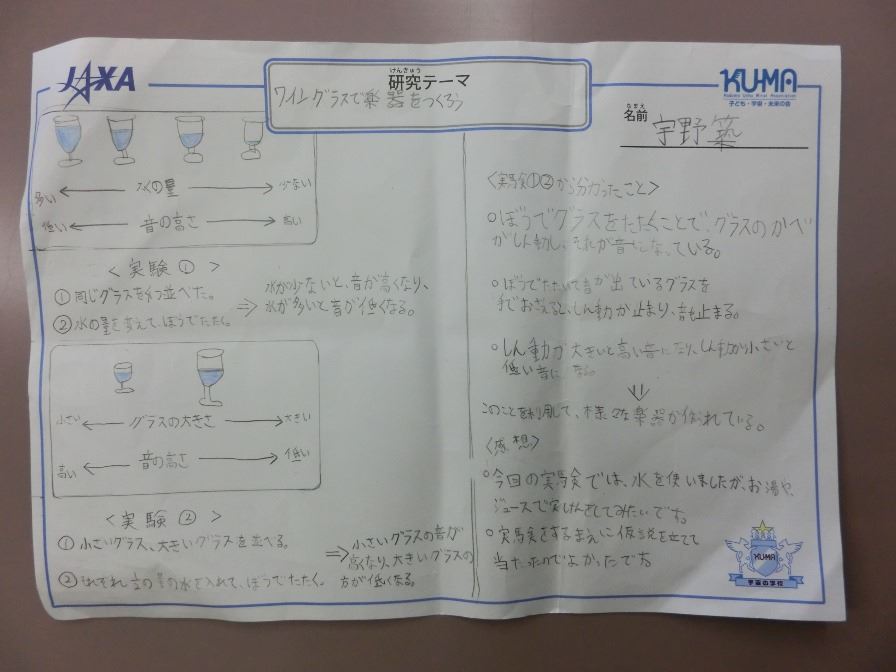 JAXA
けんきゅう
研究テーマ
ワイングラスで楽器をつくろう
KU-MA
Kodomo Uchu Mirai Association
子ども・宇宙・未来の会
なまえ
名前
宇野 築
多い ← 水の量 → 少ない
低い ← 音の高さ → 高い
<実験①>
①同じグラスを4つ並べた。
②水の量を変えて、ぼうでたたく。
⇒ 水が少ないと、音が高くなり、
水が多いと音が低くなる。
小さい ← グラスの大きさ → 大きい
高い ← 音の高さ → 低い
<実験②>
①小さいグラス、大きいグラスを並べる。
②それぞれ の量の水を入れて、ぼうでたたく。
⇒ 小さいグラスの音が
高くなり、大きいグラスの
方が低くなる。
<実験①②から分かったこと>
○ぼうでグラスをたたくことで、グラスのかべ
がしん動し、それが音になっている。
○ぼうでたたいて音が出ているグラスを
手でおさえると、しん動が止まり、音も止まる。
○しん動が大きいと高い音になり、しん動が小さいと
低い音になる。
⇓
このことを利用して、様々な楽器が作られている。
<感想>
○今回の実験では、水を使いましたが、お湯や、
ジュースで実けんをしてみたいです。
○実験をするまえに仮説を立てて
当たったのでよかったです
KUMA
宇宙の学校